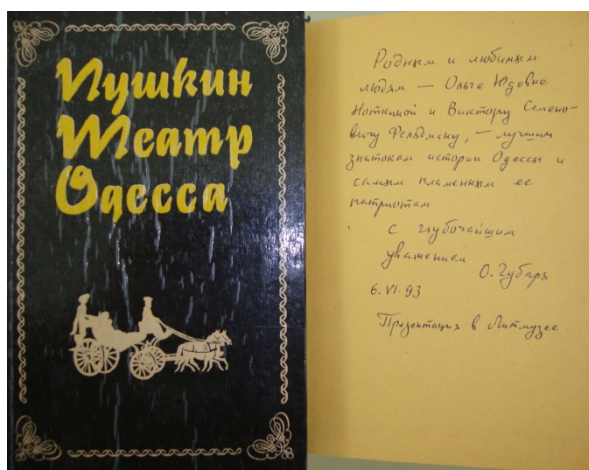 Пушкин
Театр
Одесса
Родным и любимым
людям — Ольге Юдовне
Ноткиной и Виктору Семено-
вичу Фельдману, — лучшим
знатокам истории Одессы и
самым пламенным ее
патриотам
с глубочайшим
уважением
О. Губарь
6.VI.93
Презентация в Литмузее.